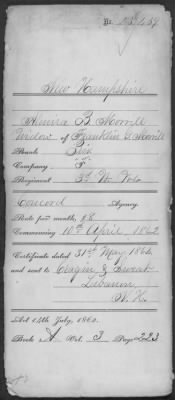 No.
New Hampshire
B. Morrill
Widow of Franklin G. Morrill
Rank,
Company, "F"
Regiment 3d N.H. Vols
Concord Agency.
Rate per month, $8
Commencing 10th April, 1862
Certificate dated 31st May 1864
and sent to
Lebanon
N. H.
Act 14th July, 1862.
Book A Vol. 3 Page 223